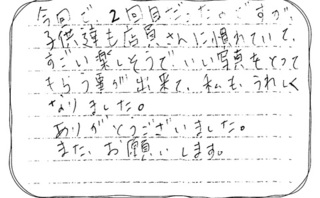 今回で2回目でしたのですが、
子供達も店員さんに慣れていて、
すごい楽しそうで、いい写真をとって
もらう事が出来て、私も、うれしく
なりました。
ありがとうございました。
また、お願いします。